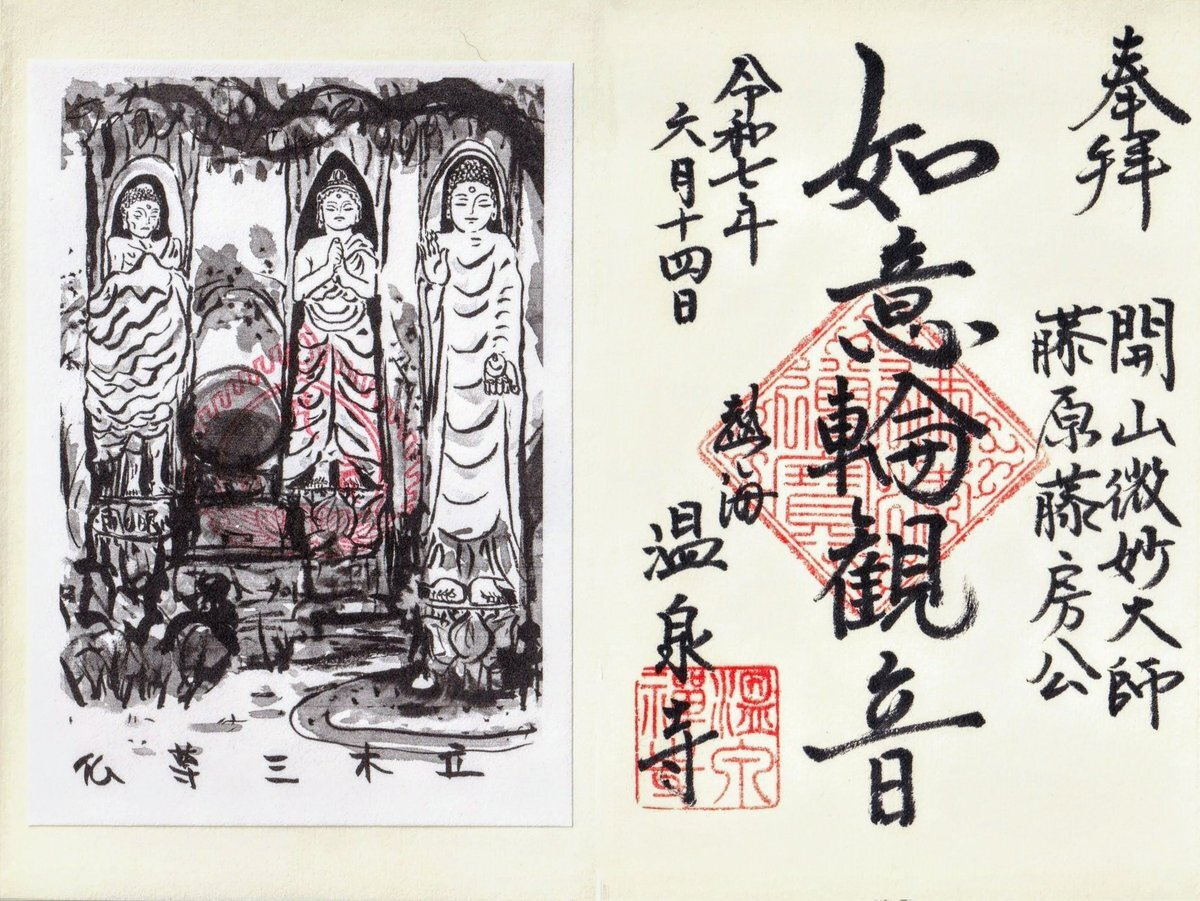 奉拝
開山微妙大師
藤原藤房公
如意輪観音
佛法僧寳
令和七年
六月十四日
熱海
温泉寺
溫泉禪寺
立木三尊仏